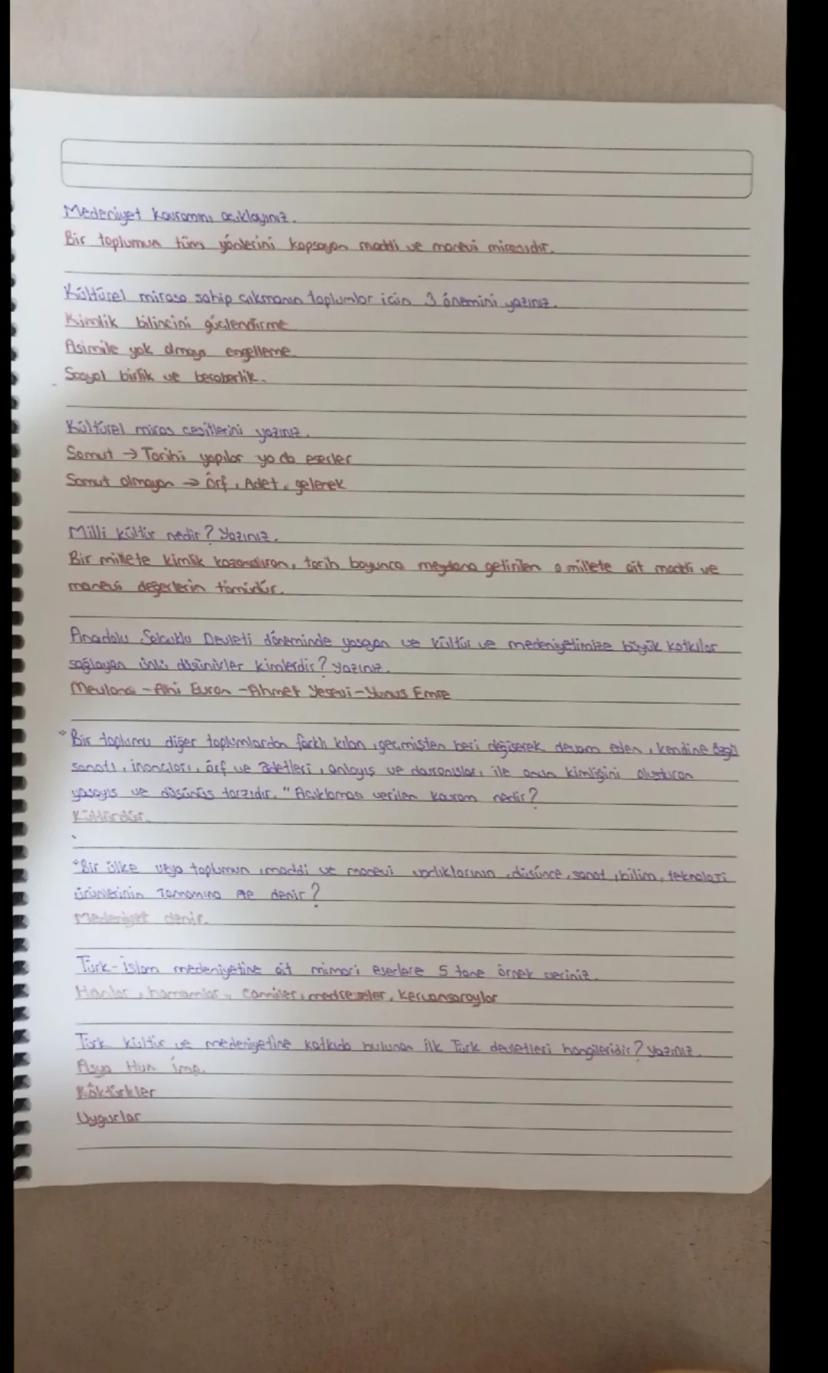 Medeniyet kavramını açıklayınız.
Bir toplumun tüm yönlerini kapsayan maddi ve manevi mirasıdır.
Kültürel mirasa sahip çıkmanın toplumlar için 3 önemini yazınız.
Kimlik bilincini güçlendirme
Asimile yok olmayı engelleme
Sosyal birlik ve beraberlik.
Kültürel miras çeşitlerini yazınız.
Somut → Tarihi yapılar ya da eserler
Somut olmayan → Örf, Adet, gelenek
Milli kültür nedir? Yazınız.
Bir millete kimlik kazandıran, tarih boyunca meydana getirilen o millete ait maddi ve
manevi değerlerin tümüdür.
Anadolu Selçuklu Devleti döneminde yaşayan ve kültür ve medeniyetimize büyük katkılar
sağlayan ünlü düşünürler kimlerdir? Yazınız.
Mevlana - Ahi Evran - Ahmet Yesevi - Yunus Emre
"Bir toplumu diğer toplumlardan farklı kılan, geçmişten beri değişerek devam eden, kendine özgü
sanatı, inançları, örf ve adetleri, anlayış ve davranışları ile onun kimliğini oluşturan
yaşayış ve düşünüş tarzıdır." Açıklaması verilen kavram nedir?
Kültürdür.
"Bir ülke veya toplumun, maddi ve manevi varlıklarının, düşünce, sanat, bilim, teknoloji
ürünlerinin tamamına ne denir?
Medeniyet denir.
Türk-İslam medeniyetine ait mimari eserlere 5 tane örnek veriniz.
Hanlar, hamamlar, camiler, medreseler, kervansaraylar
Türk kültür ve medeniyetine katkıda bulunan ilk Türk devletleri hangileridir? Yazınız.
Asya Hun İmp.
Köktürkler
Uygurlar